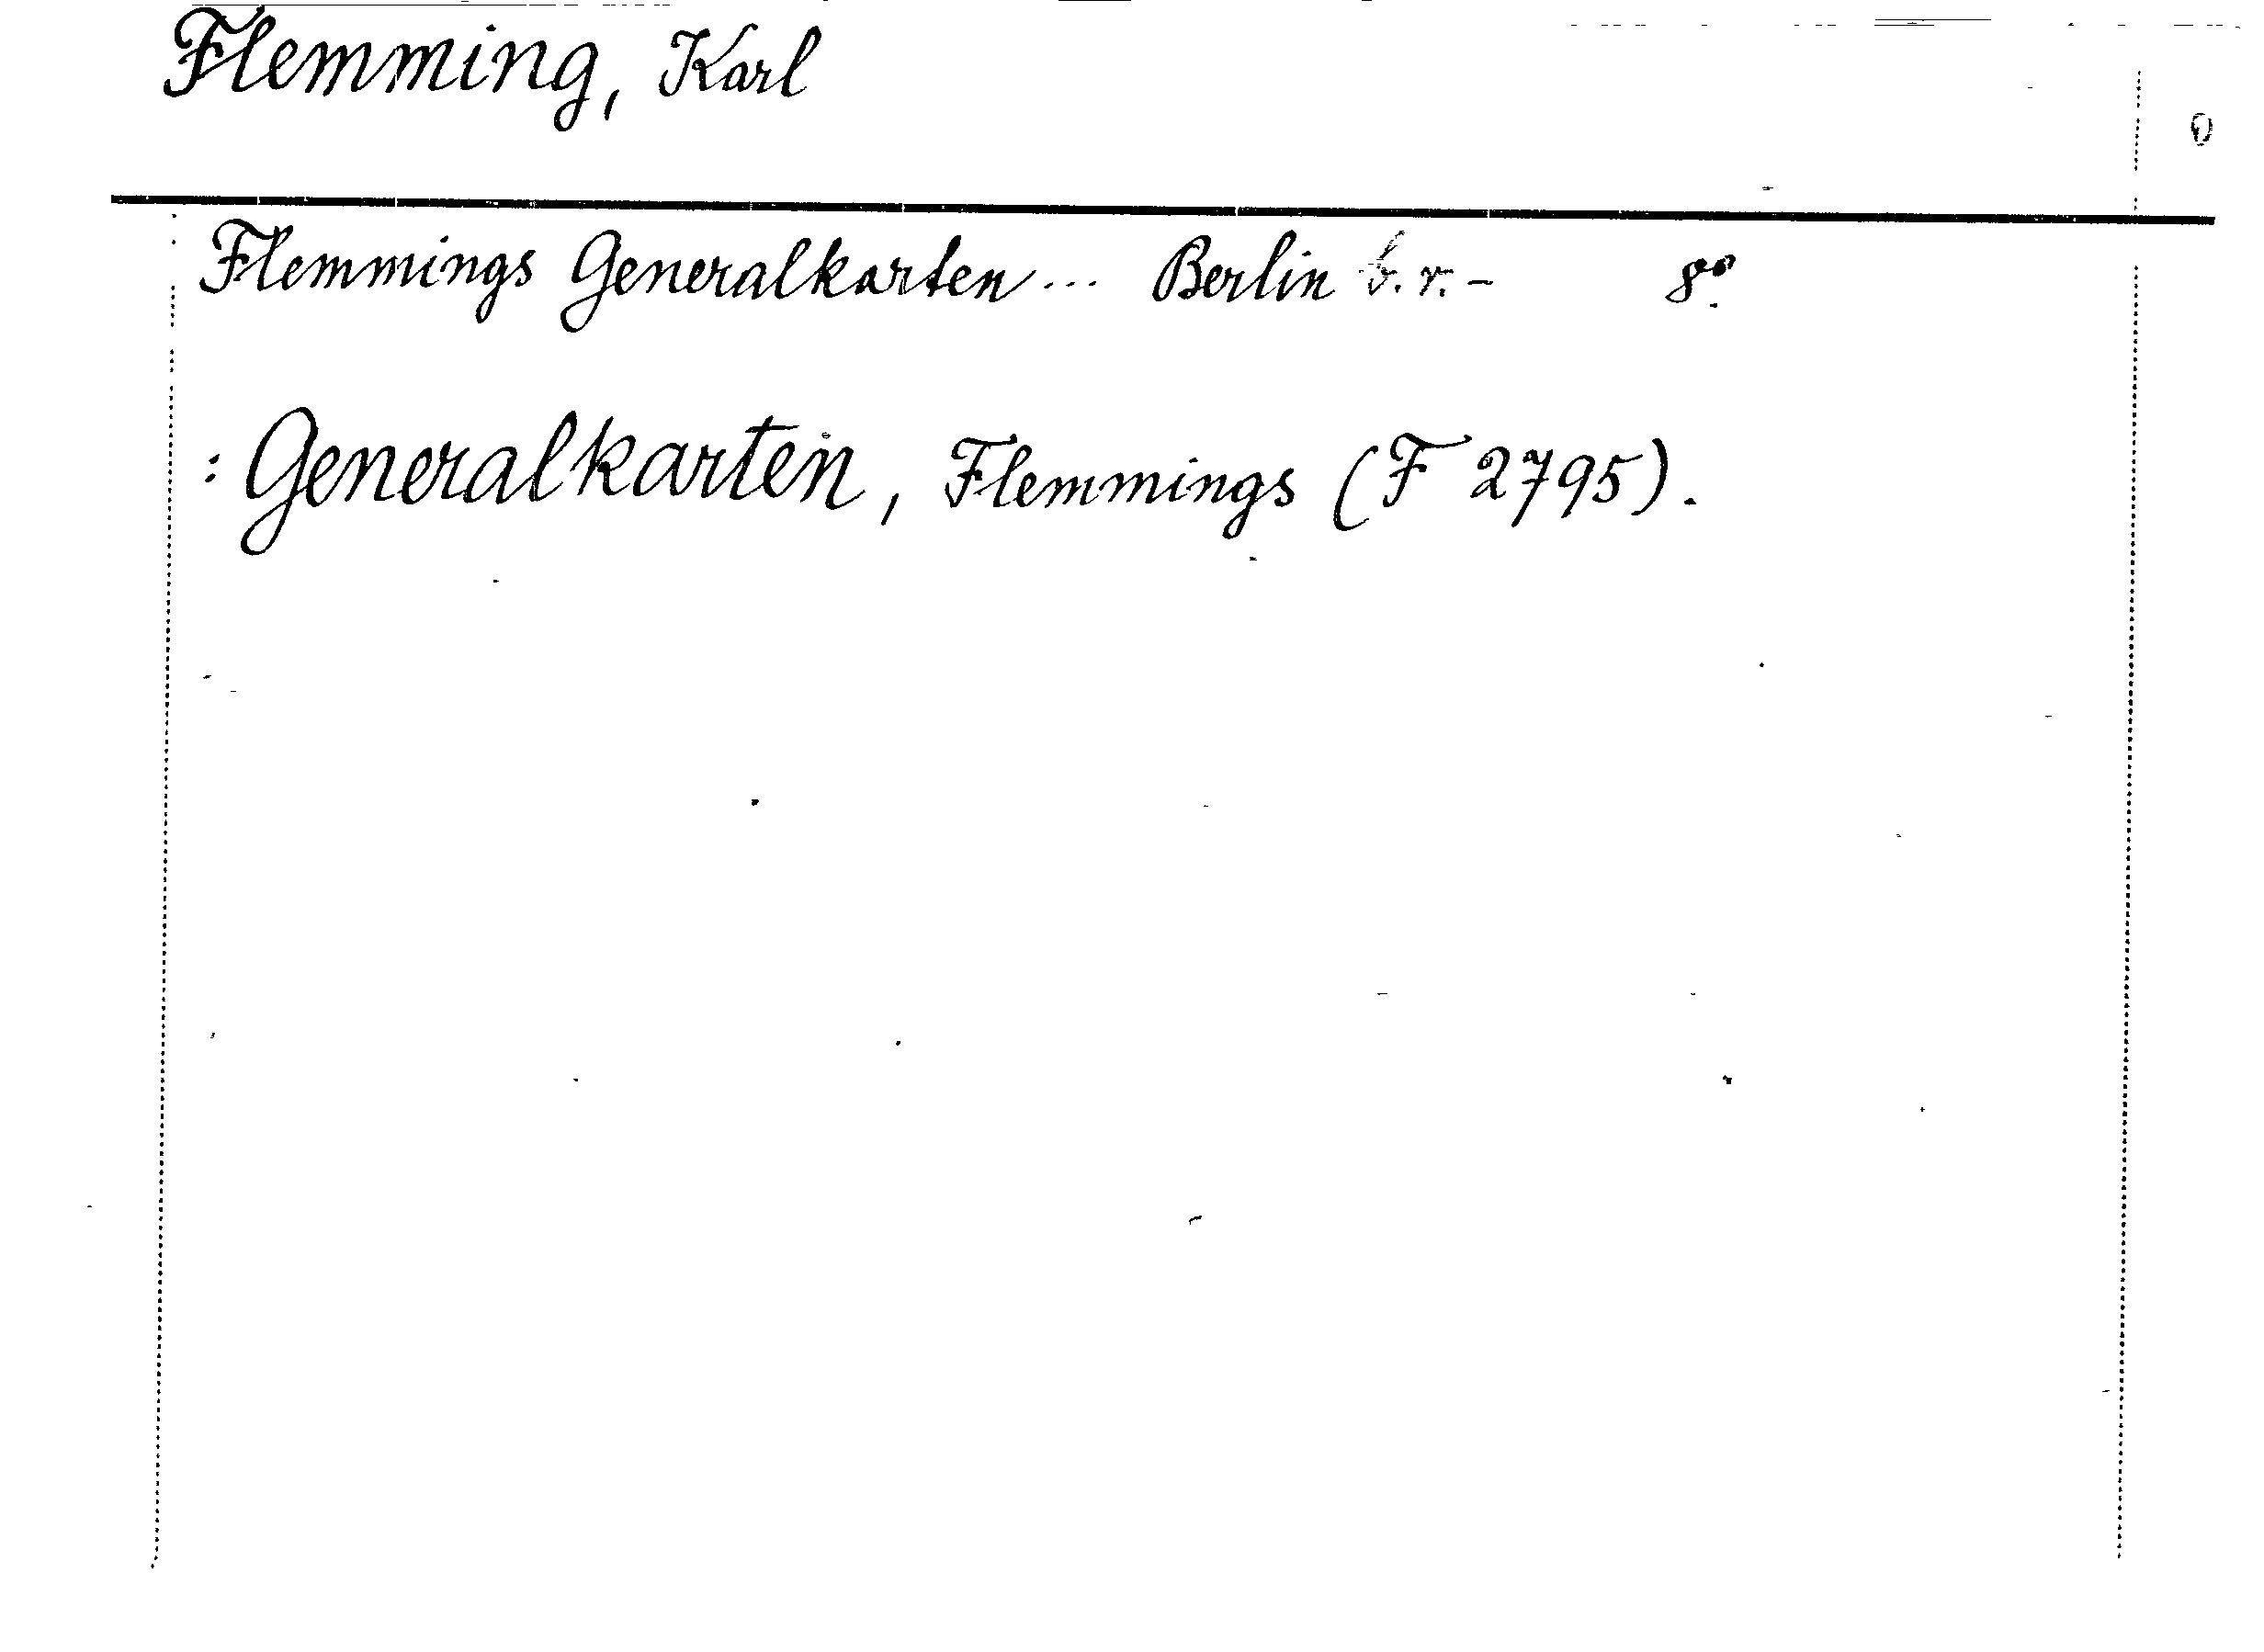 Flemming, Karl
Flemmings Generalkarten ... Berlin b. r. - 8º.
: Generalkarten, Flemmings (F 2795).